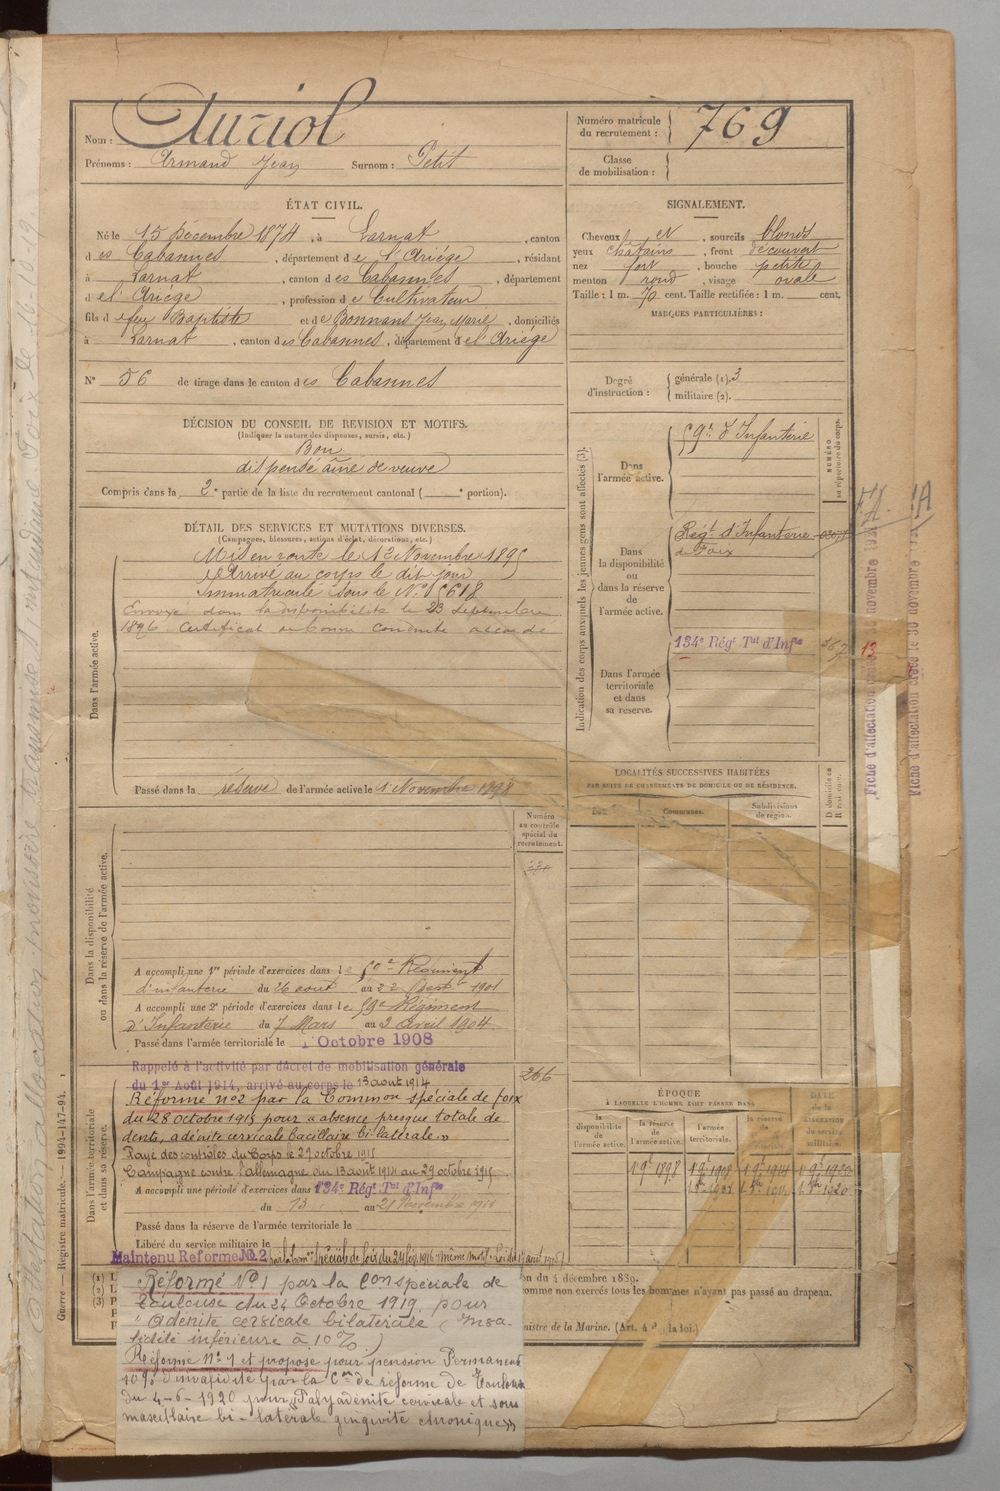 Nom : Auriol
Prénoms : Armand Jean Surnom : Petit
Numéro matricule du recrutement : 769
Classe de mobilisation :
ÉTAT CIVIL.
Né le 15 Décembre 1874, à Larnat, canton
des Cabannes, département de l'Ariége, résidant
à Larnat, canton des Cabannes, département
de l'Ariége, profession de Cultivateur
fils de feu Baptiste et de Bonnans Jean Marie, domiciliés
à Larnat, canton des Cabannes, département de l'Ariége
N° 56 de tirage dans le canton des Cabannes
SIGNALEMENT.
Cheveux et, sourcils blonds
yeux châtains, front découvert
nez fort, bouche petite
menton rond, visage ovale
Taille : 1 m. 70 cent. Taille rectifiée : 1 m. cent.
MARQUES PARTICULIÈRES :
Degré d'instruction : générale (1). 3
militaire (2).
DÉCISION DU CONSEIL DE REVISION ET MOTIFS.
(Indiquer la nature des dispenses, sursis, etc.)
Bon
dispensé aîné de veuve
Compris dans la 2e partie de la liste du recrutement cantonal ( e portion).
DÉTAIL DES SERVICES ET MUTATIONS DIVERSES.
(Campagnes, blessures, actions d'éclat, décorations, etc.)
Dans l'armée active.
Mis en route le 12 Novembre 1895
Arrivé au corps le dit jour
Immatriculé sous le N° 5618
Envoyé dans la disponibilité le 23 Septembre
1896 Certificat de bonne conduite accordé
Passé dans la réserve de l'armée active le 1 Novembre 1898
Indication des corps auxquels les jeunes gens sont affectés (3).
NUMÉRO au répertoire du corps.
Dans l'armée active.
59e d'Infanterie
Dans la disponibilité ou dans la réserve de l'armée active.
Régt d'Infanterie
de Foix
Dans l'armée territoriale et dans sa réserve.
134e Régt Tal d'Infie
13
Fiche d'affectation
Fiche d'affectation créée le 30 novembre
LOCALITÉS SUCCESSIVES HABITÉES
PAR SUITE DE CHANGEMENTS DE DOMICILE OU DE RÉSIDENCE.
Communes.
Subdivisions de région.
Numéro au contrôle spécial du recrutement.
Dans la disponibilité ou dans la réserve de l'armée active.
A accompli une 1re période d'exercices dans le 59e Régiment
d'infanterie du 26 août au 22 Septbre 1901
A accompli une 2e période d'exercices dans le 59e Régiment
d'Infanterie du 7 Mars au 3 Avril 1904
Passé dans l'armée territoriale le 1 Octobre 1908
Dans l'armée territoriale et dans sa réserve.
Rappelé à l'activité par décret de mobilisation générale
du 1er Août 1914, arrivé au corps le 13 août 1914
266
Réformé n°2 par la Common spéciale de foix
du 28 octobre 1915 pour « absence presque totale de
dents, adénite cervicale bacillaire bi-latérale. »
Rayé des contrôles du Corps le 29 octobre 1915
Campagne contre l'allemagne du 13 août 1914 au 29 octobre 1915
A accompli une période d'exercices dans 134e Régt Tal d'Infie
du 13 au 21 Novembre
Passé dans la réserve de l'armée territoriale le
Libéré du service militaire le
Maintenu Réformé No 2 par la Comon spéciale de foix du 24 fév. 1916 même motif
ÉPOQUE
À LAQUELLE L'HOMME DOIT PASSER DANS
la disponibilité de l'armée active.
la réserve de l'armée active.
l'armée territoriale.
la réserve
DATE de la libération du service militaire.
1 9bre 1898
du 4 décembre 1889.
comme non exercés tous les hommes n'ayant pas passé au drapeau.
Ministre de la Marine. (Art. 4 la loi.)
Réformé N°1 par la Con spéciale de
Toulouse du 24 Octobre 1919 pour
"Adénite cervicale bilatérale (Inva-
lidité inférieure à 10%.)
Réformé n°1 et proposé pour pension Permanente
10% d'invalidité par la Con de réforme de Toulouse
du 4-6-1920 pour « Polyadénite cervicale et sous
maxillaire bi-latérale gingivite chronique »
Guerre — Registre matricule. — 1994-147-94.